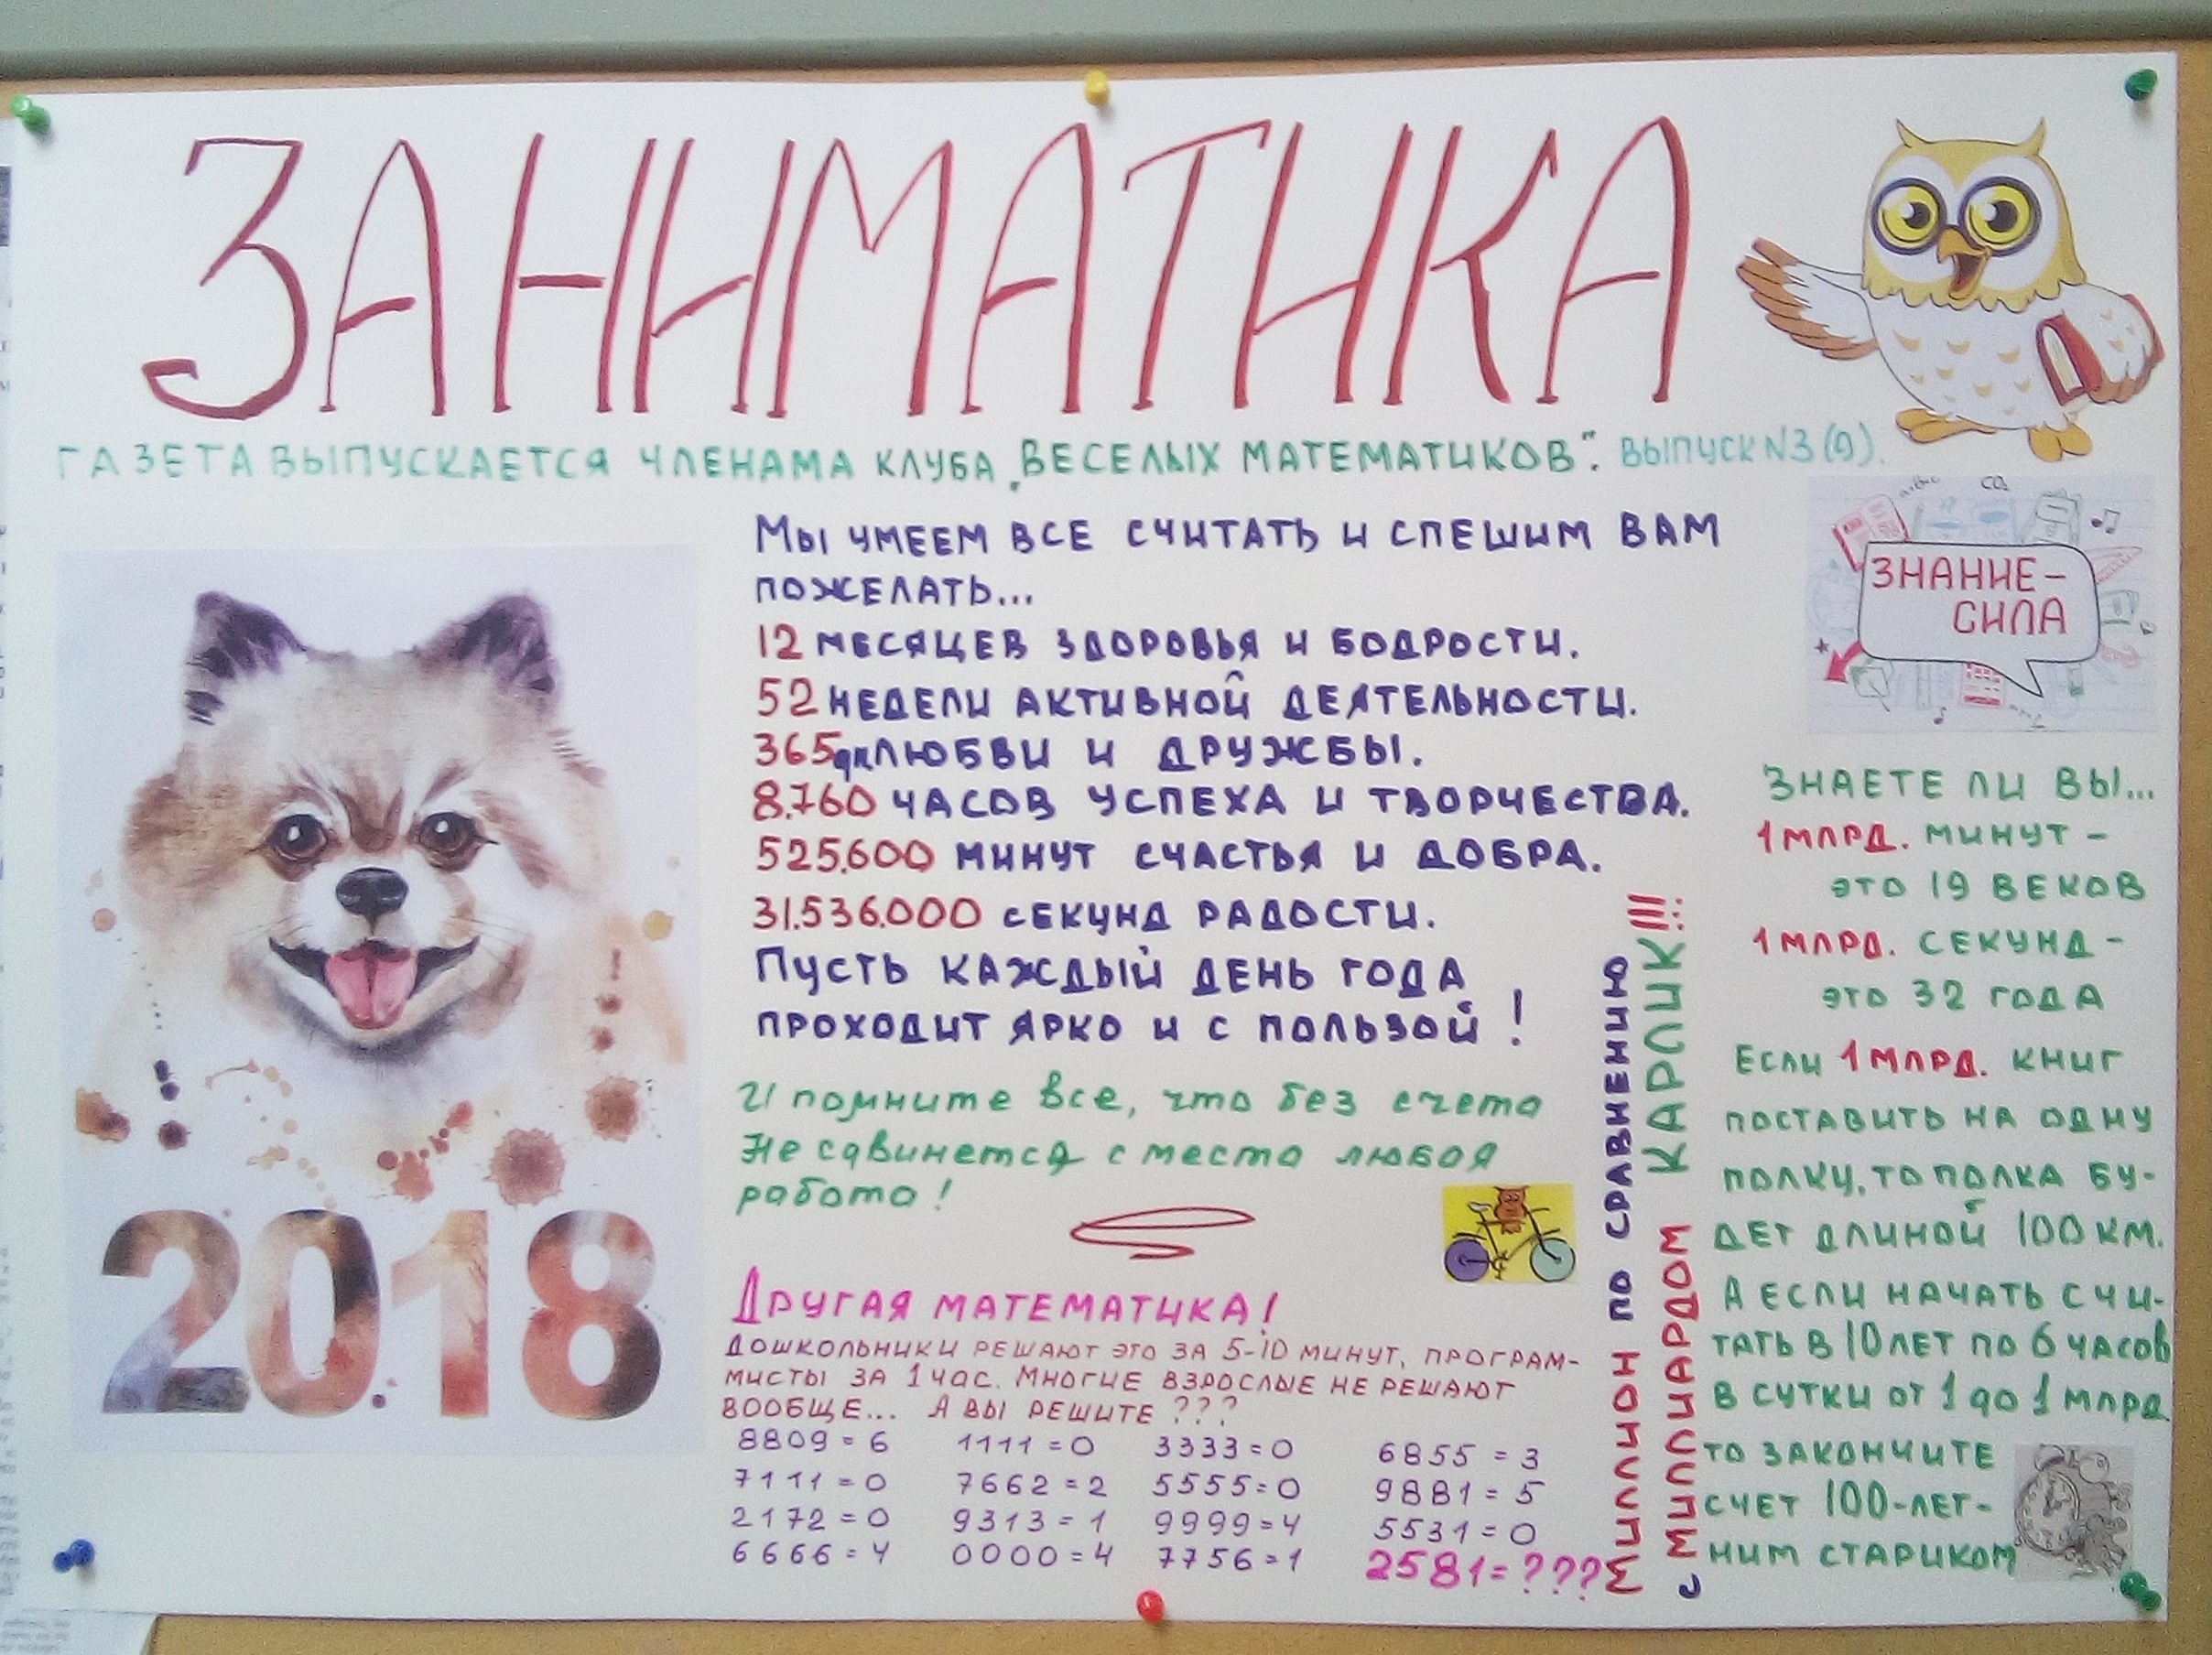 ЗАНИМАТИКА
ГАЗЕТА ВЫПУСКАЕТСЯ ЧЛЕНАМА КЛУБА „ВЕСЕЛЫХ МАТЕМАТИКОВ". ВЫПУСК N3(9).
Мы умеем все считать и спешим вам
пожелать...
12 месяцев здоровья и бодрости.
52 недели активной деятельности.
365дн любви и дружбы.
8.760 часов успеха и творчества.
525.600 минут счастья и добра.
31.536.000 секунд радости.
Пусть каждый день года
проходит ярко и с пользой!
И помните все, что без счета
Не сдвинется с места любая
работа!
2018
Другая математика!
Дошкольники решают это за 5-10 минут, програм-
мисты за 1 час. Многие взрослые не решают
вообще... А вы решите ???
8809 = 6 1111 = 0 3333 = 0 6855 = 3
7111 = 0 7662 = 2 5555 = 0 9881 = 5
2172 = 0 9313 = 1 9999 = 4 5531 = 0
6666 = 4 0000 = 4 7756 = 1 2581 = ???
Миллион по сравнению
с миллиардом карлик!!!
CO₂
ЗНАНИЕ-
СИЛА
Знаете ли вы...
1 млрд. минут -
это 19 веков
1 млрд. секунд -
это 32 года
Если 1 млрд. книг
поставить на одну
полку, то полка бу-
дет длиной 100 км.
А если начать счи-
тать в 10 лет по 6 часов
в сутки от 1 до 1 млрд
то закончите
счет 100-лет-
ним стариком